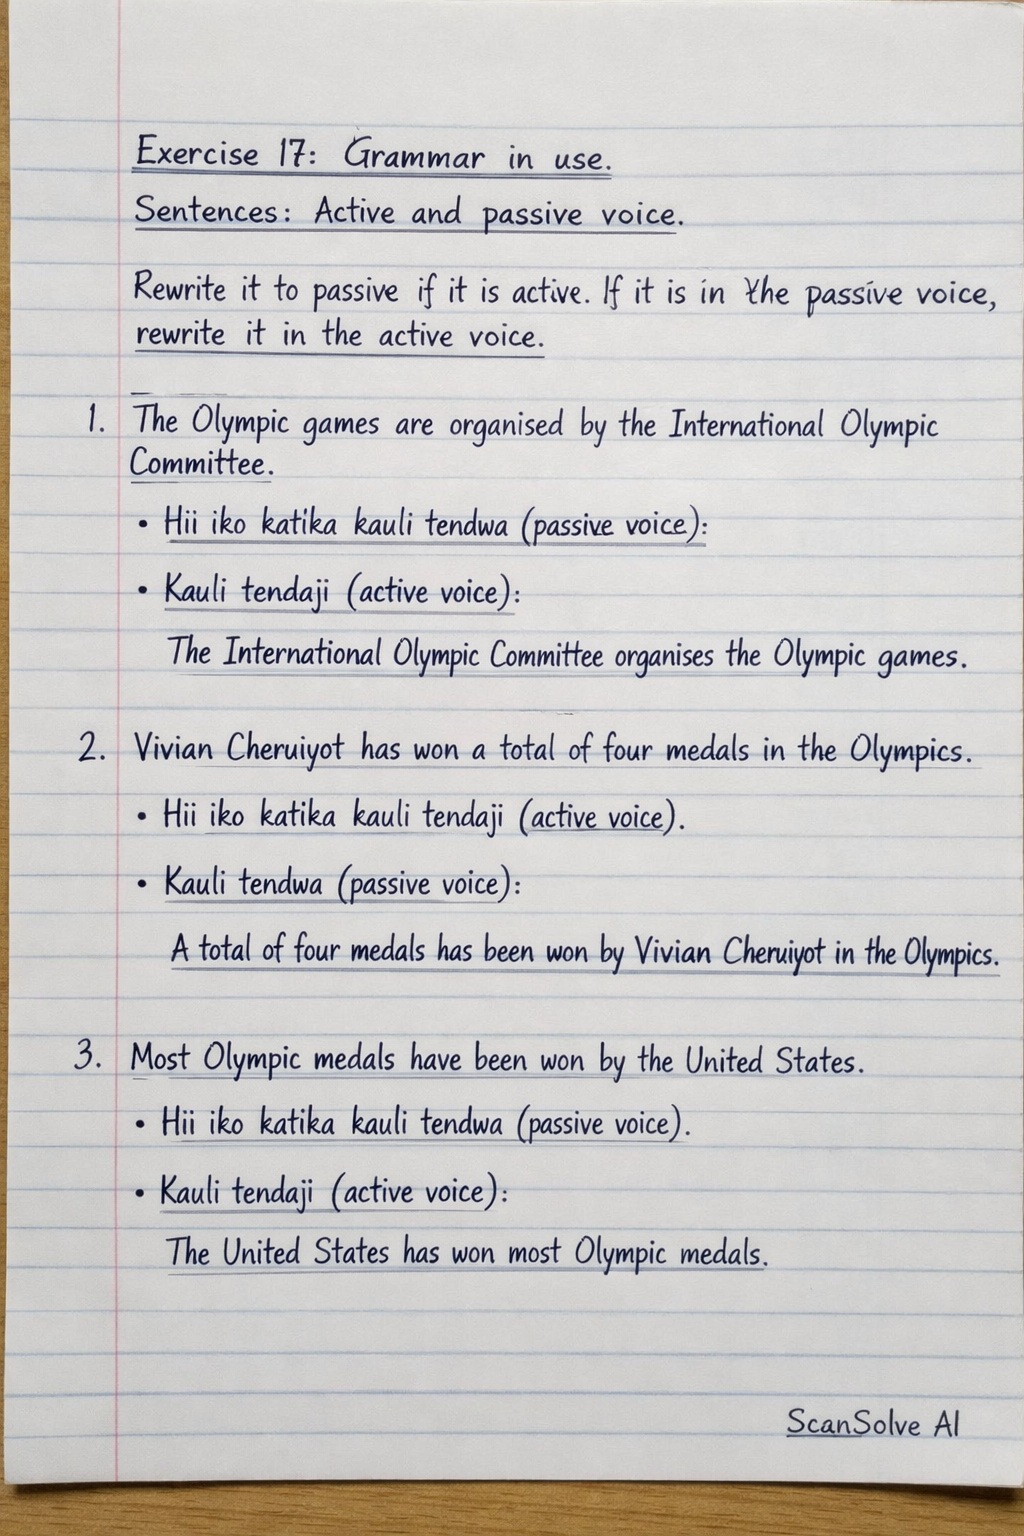 Exercise 17: Grammar in use.
Sentences: Active and passive voice.
Rewrite it to passive if it is active. If it is in the passive voice,
rewrite it in the active voice.
1. The Olympic games are organised by the International Olympic
Committee.
• Hii iko katika kauli tendwa (passive voice):
• Kauli tendaji (active voice):
The International Olympic Committee organises the Olympic games.
2. Vivian Cheruiyot has won a total of four medals in the Olympics.
• Hii iko katika kauli tendaji (active voice).
• Kauli tendwa (passive voice):
A total of four medals has been won by Vivian Cheruiyot in the Olympics.
3. Most Olympic medals have been won by the United States.
• Hii iko katika kauli tendwa (passive voice).
• Kauli tendaji (active voice):
The United States has won most Olympic medals.
ScanSolve AI